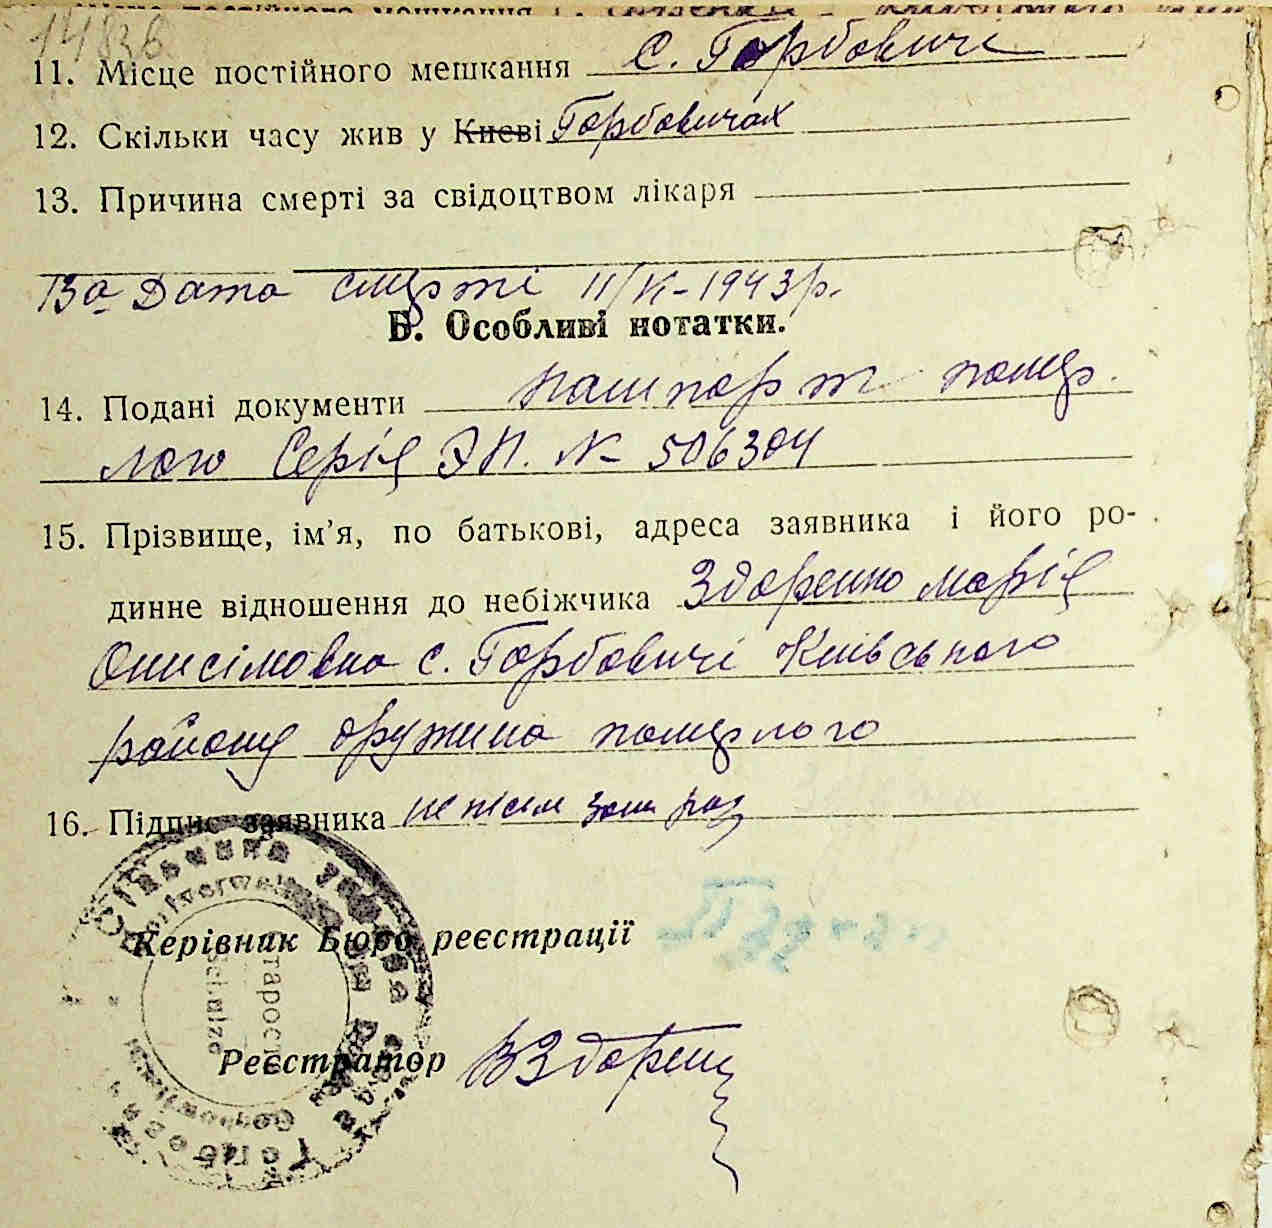 14826
11. Місце постійного мешкання с. Горбовичі
12. Скільки часу жив у Києві Горбовичах
13. Причина смерті за свідоцтвом лікаря
13а Дата смерті 11/VI-1943 р.
Б. Особливі нотатки.
14. Подані документи пашпорт помер
лого Серія ЭП. № 506304
15. Прізвище, ім’я, по батькові, адреса заявника і його ро-
динне відношення до небіжчика Здоренко Марія
Онисімовна с. Горбовичі Київського
району дружина померлого
16. Підпис заявника
Керівник Бюро реєстрації
Реєстратор ВЗдорен
Староста
Schulze